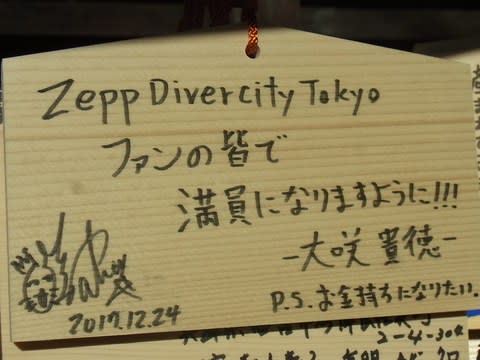 Zepp Divercity Tokyo
ファンの皆で
満員になりますように!!!
-大咲貴徳-
P.S. お金持ちになりたい。
2017.12.24
2-4-304